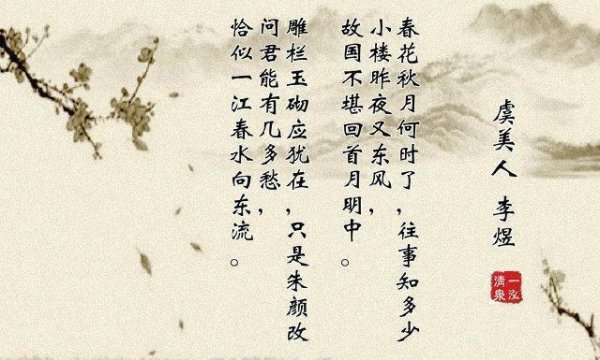 虞美人 李煜
春花秋月何时了，往事知多少
小楼昨夜又东风，
故国不堪回首月明中。
雕栏玉砌应犹在，只是朱颜改
问君能有几多愁，
恰似一江春水向东流。
一泓清泉